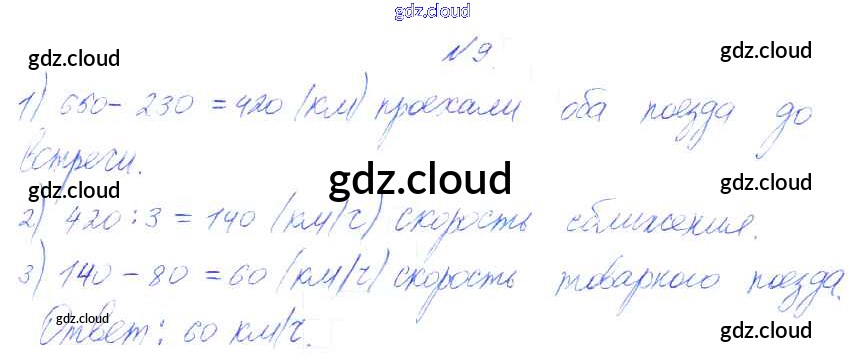 gdz.cloud
№ 9.
gdz.cloud
gdz.cloud
1) 650 - 230 = 420 (км) проехали оба поезда до
встречи.
gdz.cloud
gdz.cloud
gdz.cloud
2) 420 : 3 = 140 (км/ч) скорость сближения.
3) 140 - 80 = 60 (км/ч) скорость товарного поезда.
Ответ: 60 км/ч.
gdz.cloud
gdz.cloud
gdz.cloud